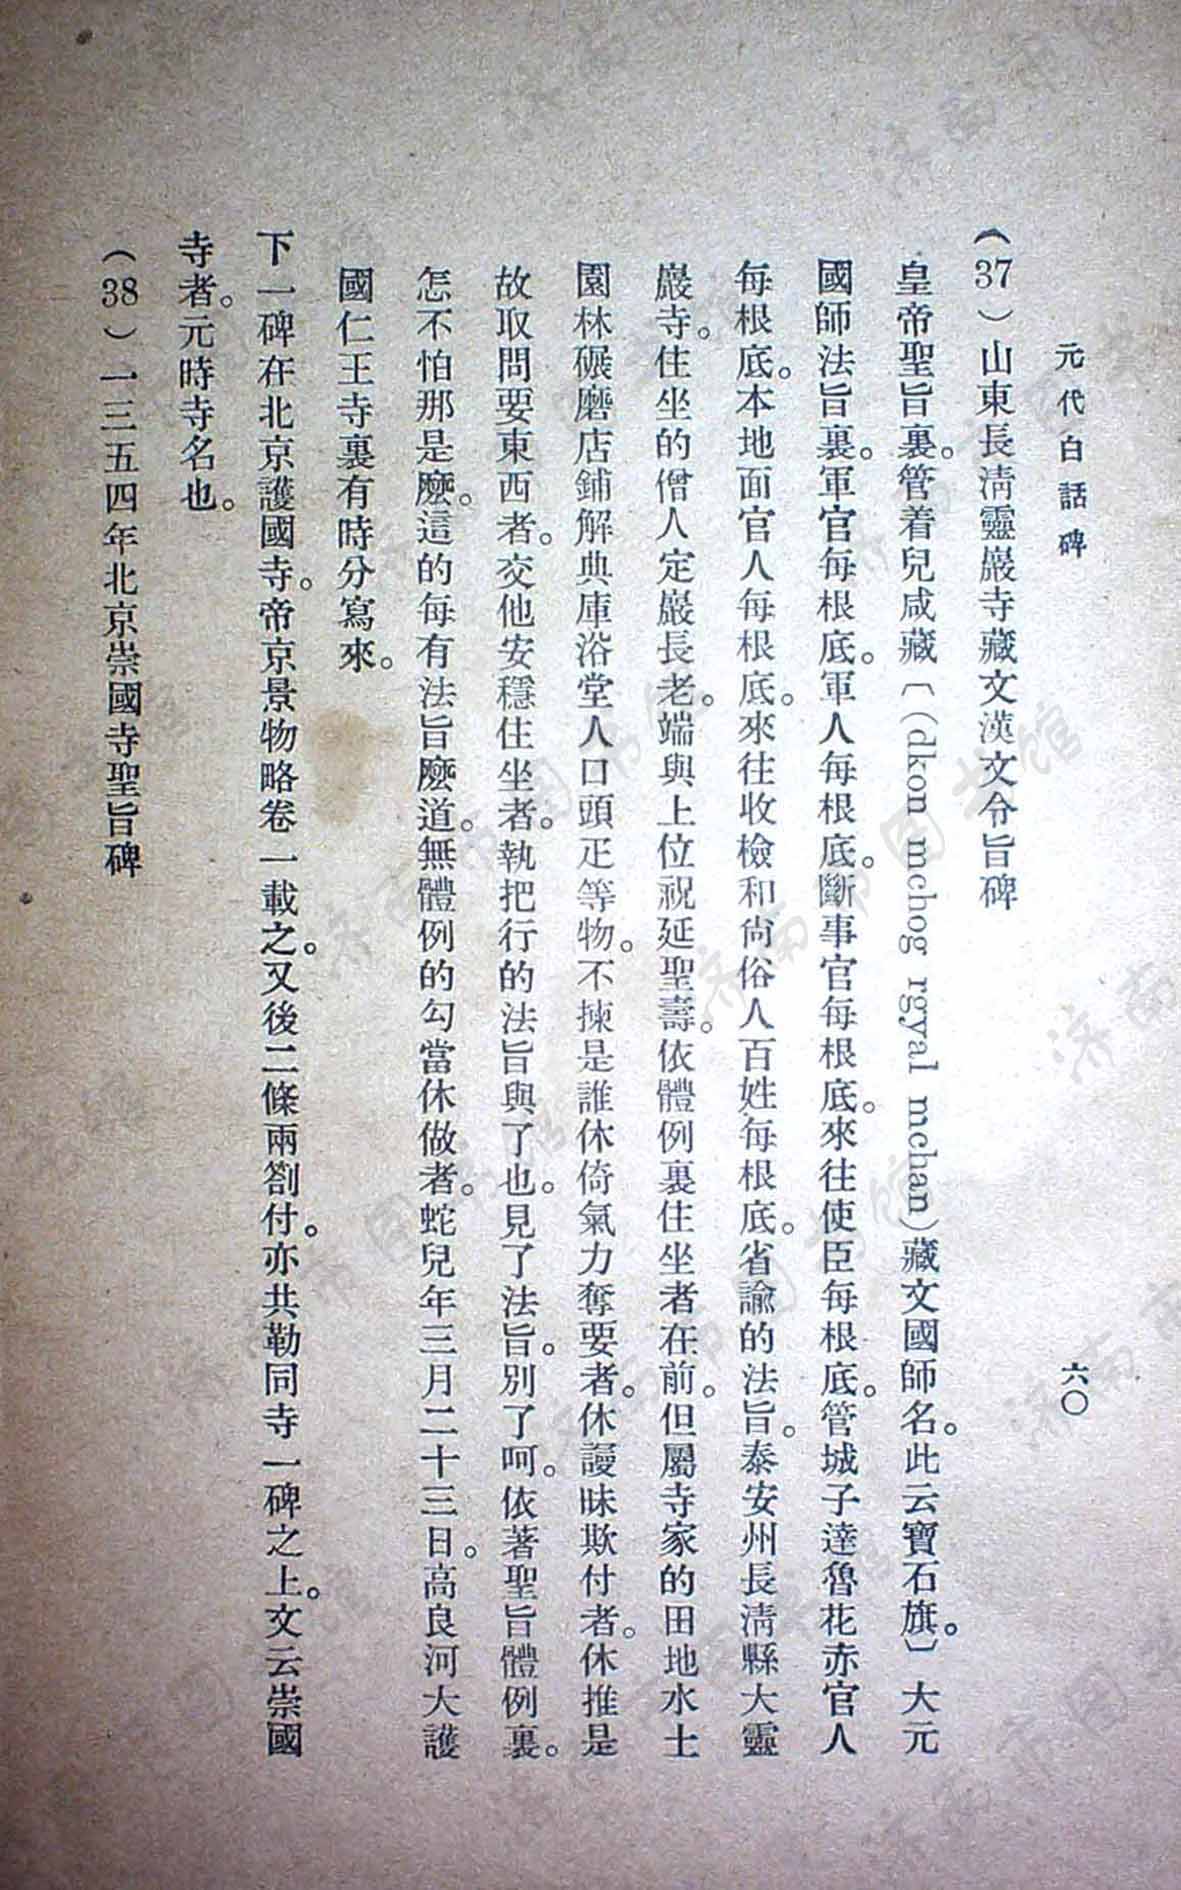 元代白話碑
六〇
（37）山東長淸靈巖寺藏文漢文令旨碑
皇帝聖旨裏。管着兒咸藏〔（dkon mchog rgyal mchan）藏文國師名。此云寶石旗。〕大元
國師法旨裏。軍官每根底。軍人每根底。斷事官每根底。來往使臣每根底。管城子達魯花赤官人
每根底。本地面官人每根底。來往收檢和尙俗人百姓每根底。省諭的法旨。泰安州長淸縣大靈
巖寺。住坐的僧人定巖長老。端與上位祝延聖壽。依體例裏住坐者在前。但屬寺家的田地水土
園林碾磨店鋪解典庫浴堂人口頭疋等物。不揀是誰休倚氣力奪要者。休謾昧欺付者。休推是
故取問要東西者。交他安穩住坐者。執把行的法旨與了也。見了法旨。別了呵。依著聖旨體例裏。
怎不怕那是麼。這的每有法旨麼道。無體例的勾當休做者。蛇兒年三月二十三日。高良河大護
國仁王寺裏有時分寫來。
下一碑在北京護國寺。帝京景物略卷一載之。又後二條兩劄付。亦共勒同寺一碑之上。文云崇國
寺者。元時寺名也。
（38）一三五四年北京崇國寺聖旨碑
济南市图书馆